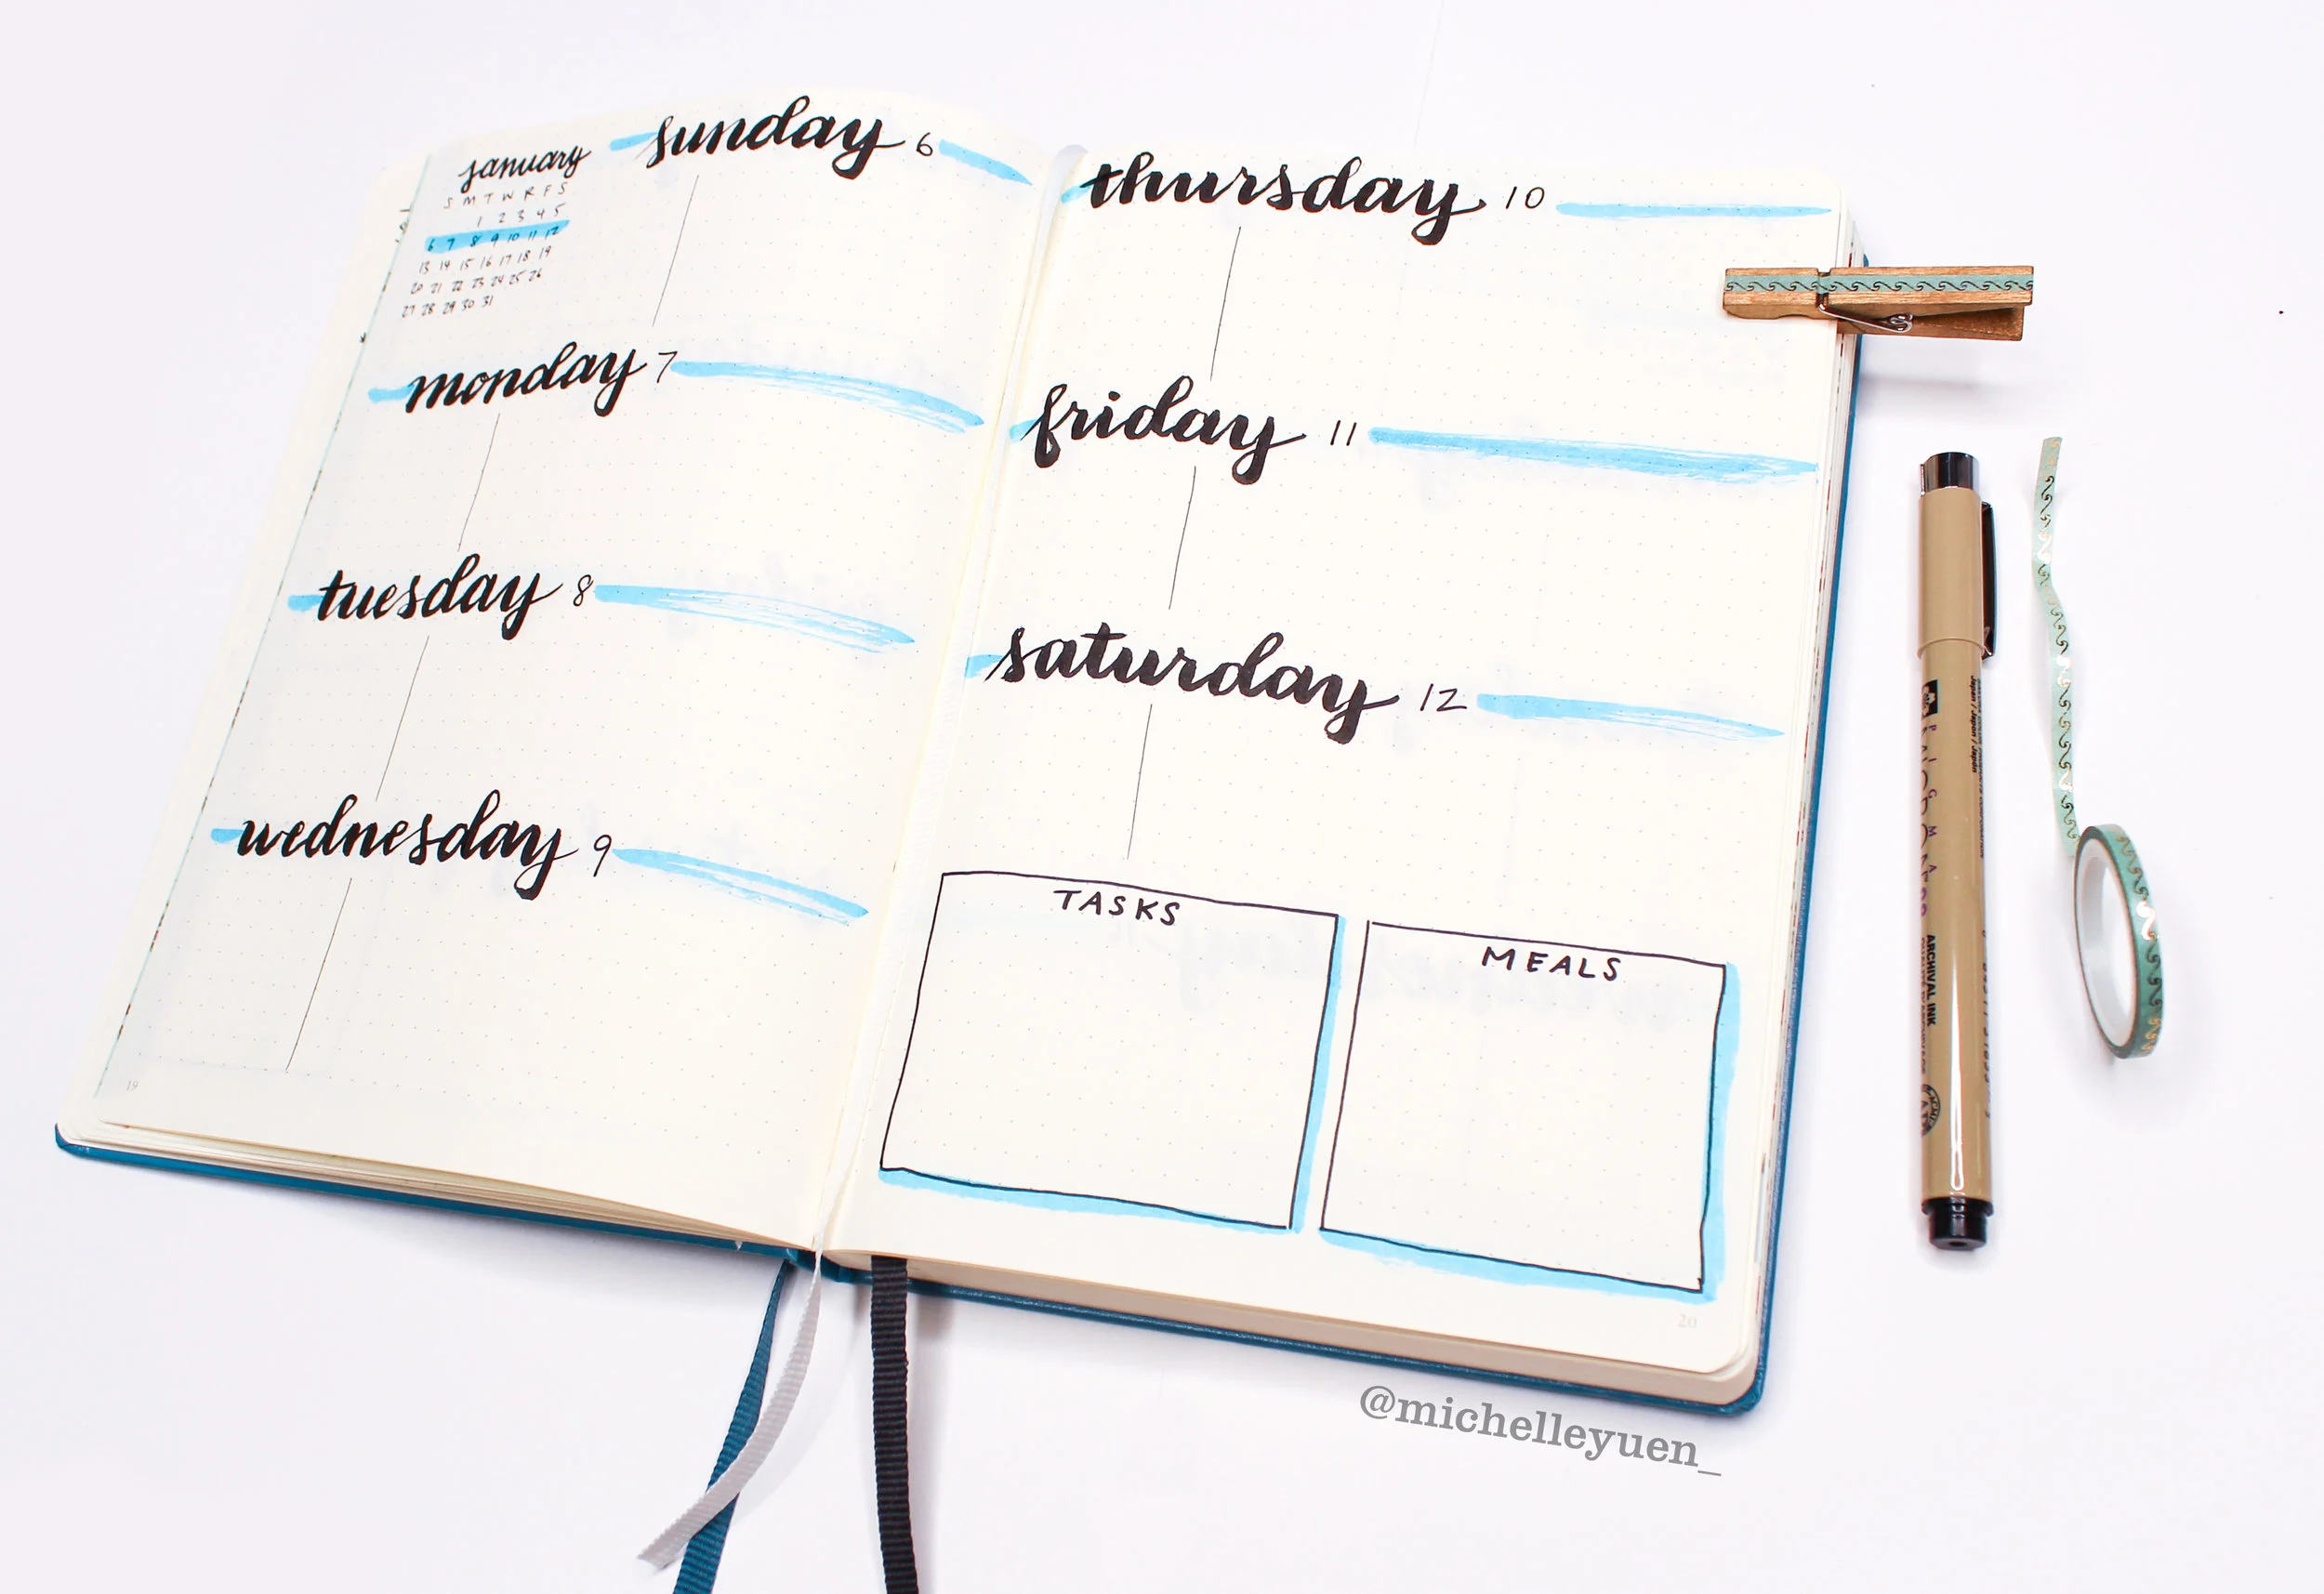 january
S M T W R F S
1 2 3 4 5
6 7 8 9 10 11 12
13 14 15 16 17 18 19
20 21 22 23 24 25 26
27 28 29 30 31
sunday 6
monday 7
tuesday 8
wednesday 9
19
thursday 10
friday 11
saturday 12
TASKS
MEALS
20
ARCHIVAL INK
@michelleyuen_